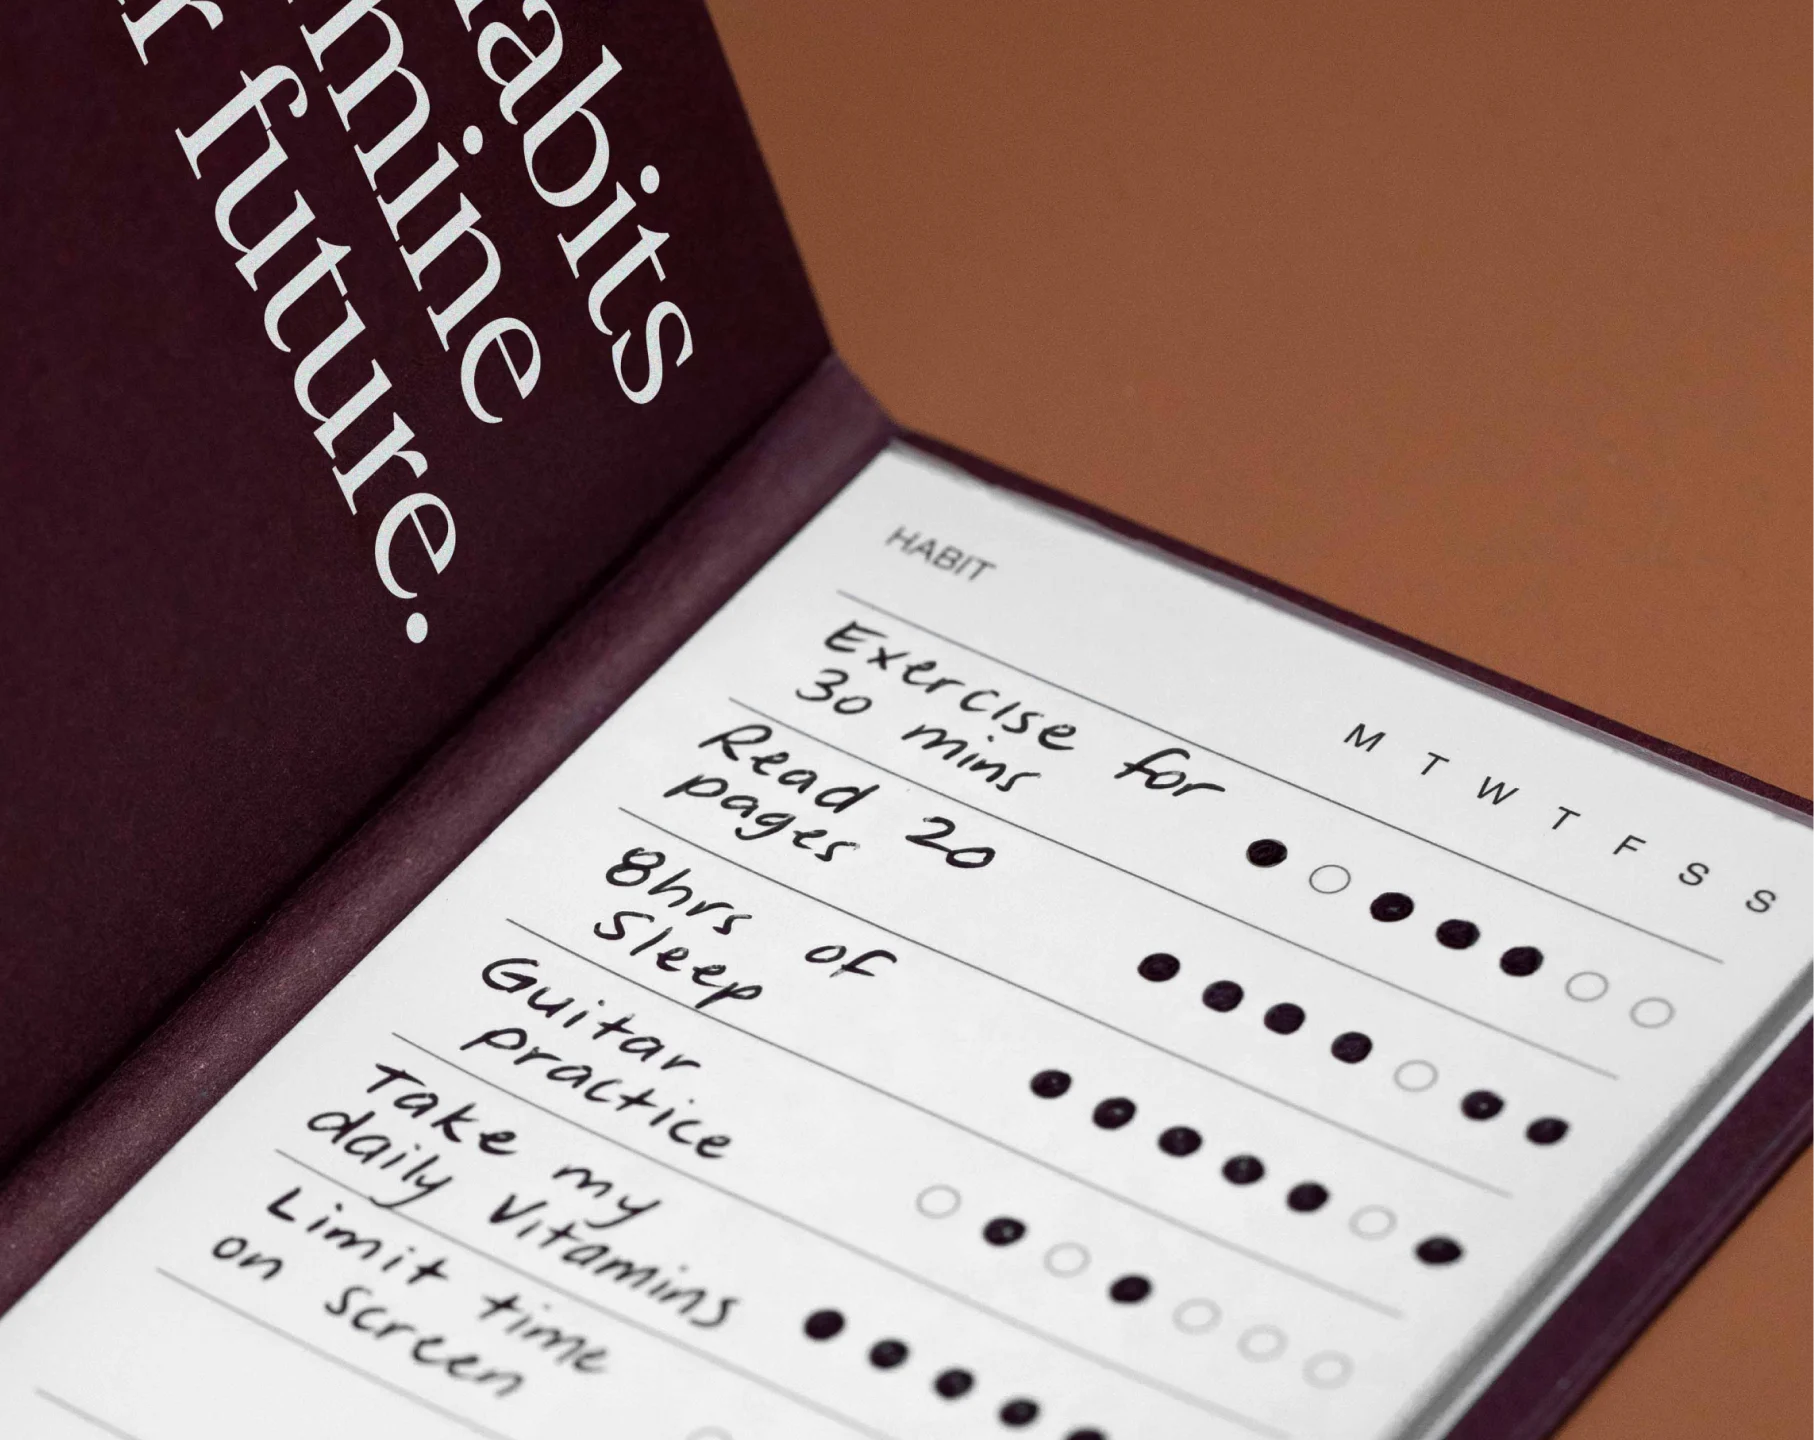 habits
mine
future.
HABIT
M T W T F S S
Exercise for
30 mins
Read 20
pages
8hrs of
Sleep
Guitar
practice
Take my
daily Vitamins
Limit time
on screen